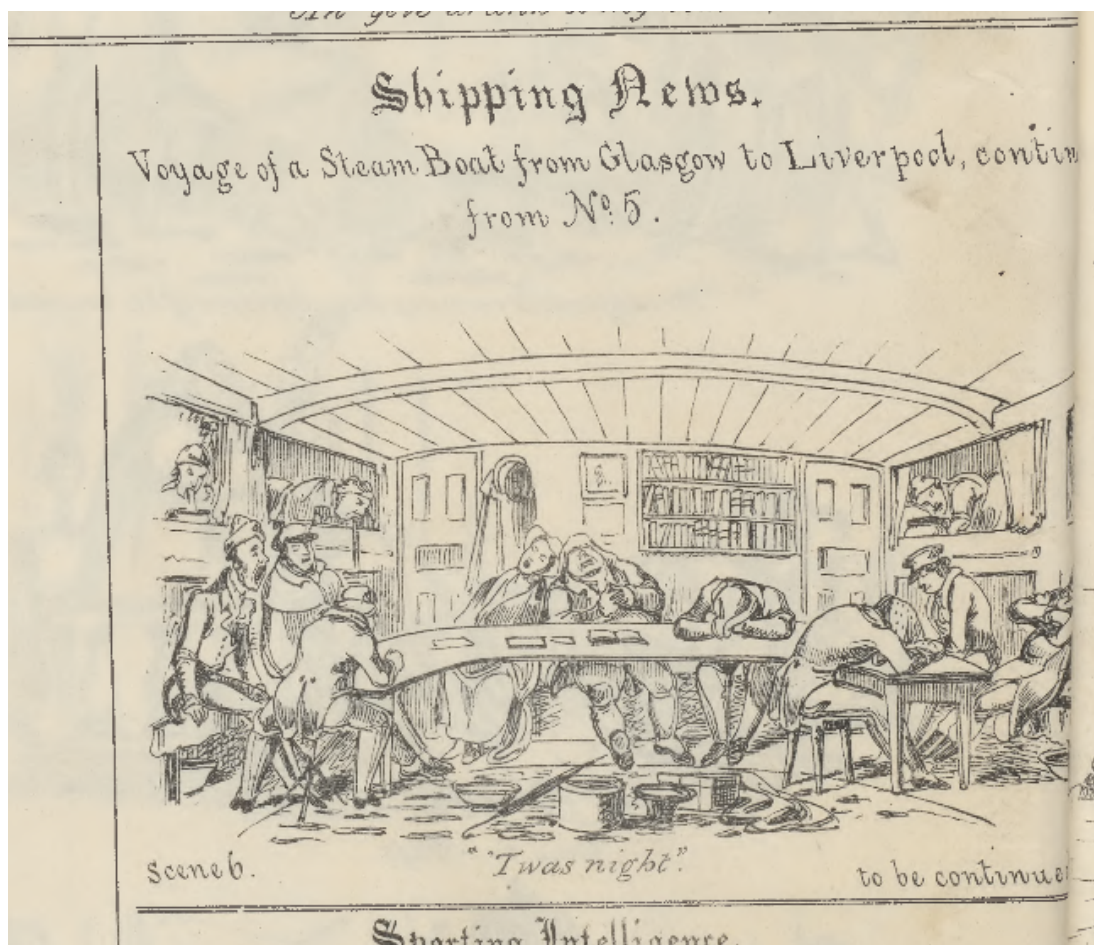 Shipping News.
Voyage of a Steam Boat from Glasgow to Liverpool, contin
from No. 5.
Scene 6.
"'Twas night".
to be continue
Sporting Intelligence.